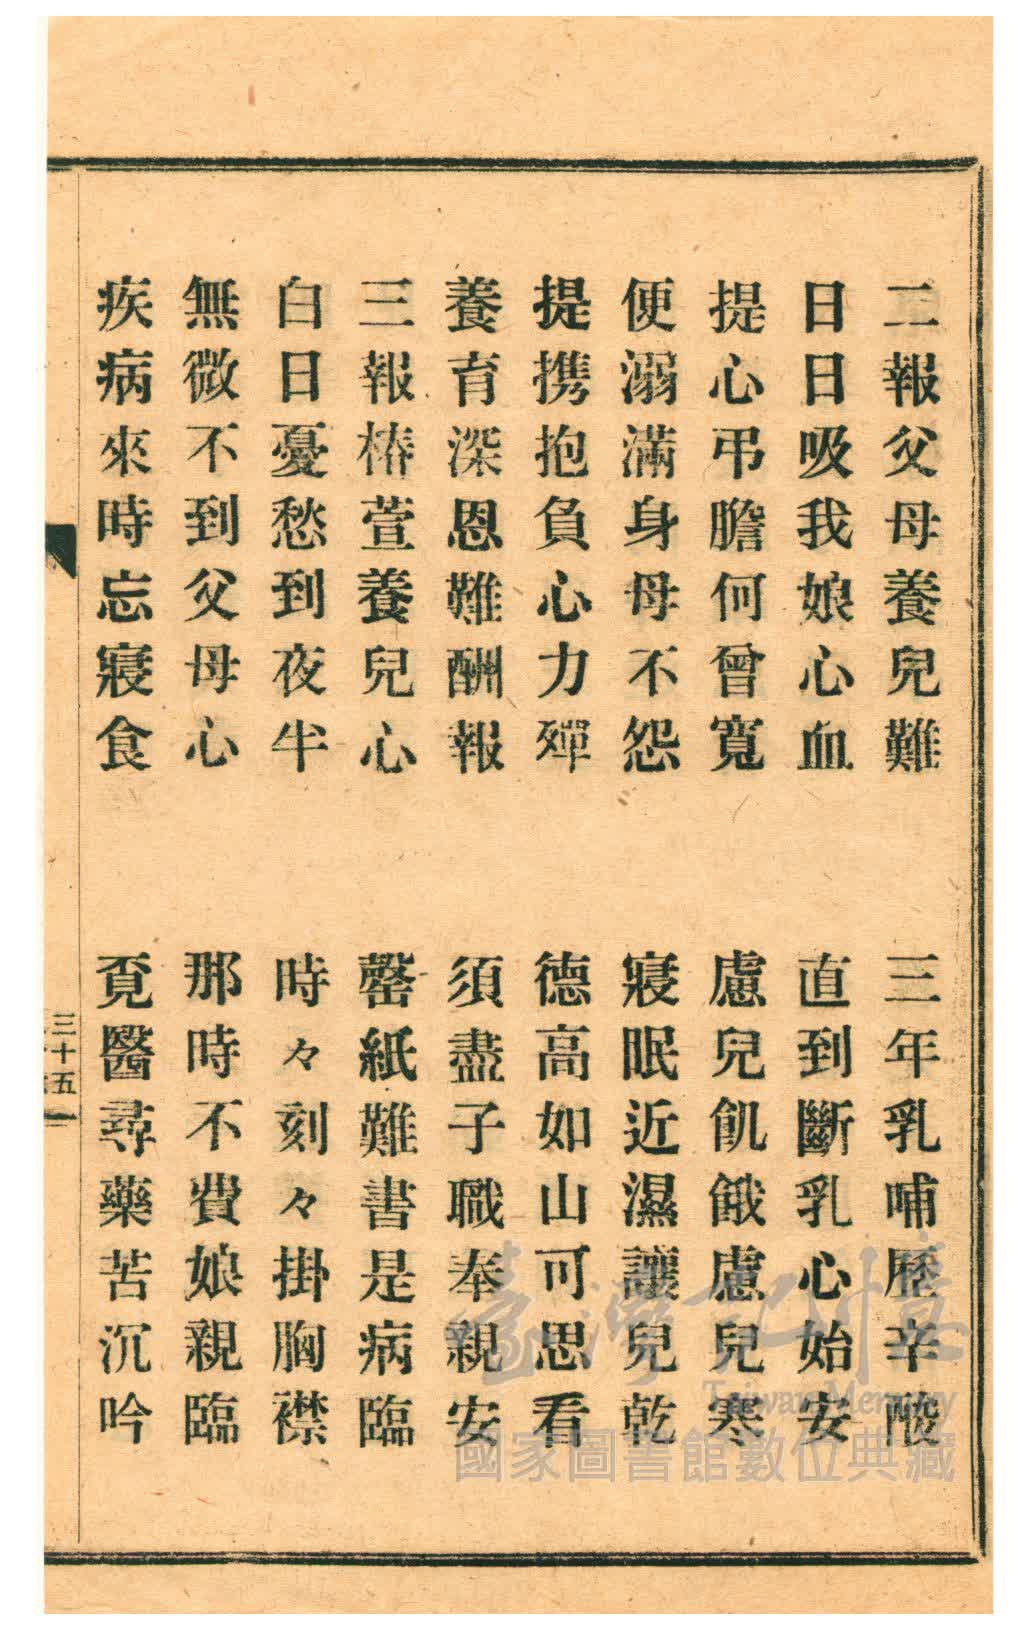 二報父母養兒難　三年乳哺歷辛酸
日日吸我娘心血　直到斷乳心始安
提心弔膽何曾寬　慮兒飢餓慮兒寒
便溺滿身母不怨　寢眠近濕讓兒乾
提携抱負心力殫　德高如山可思看
養育深恩難酬報　須盡子職奉親安
三報椿萱養兒心　罄紙難書是病臨
白日憂愁到夜半　時々刻々掛胸襟
無微不到父母心　那時不費娘親臨
疾病來時忘寢食　覓醫尋藥苦沉吟
三十五
臺灣記憶
Taiwan Memory
國家圖書館數位典藏